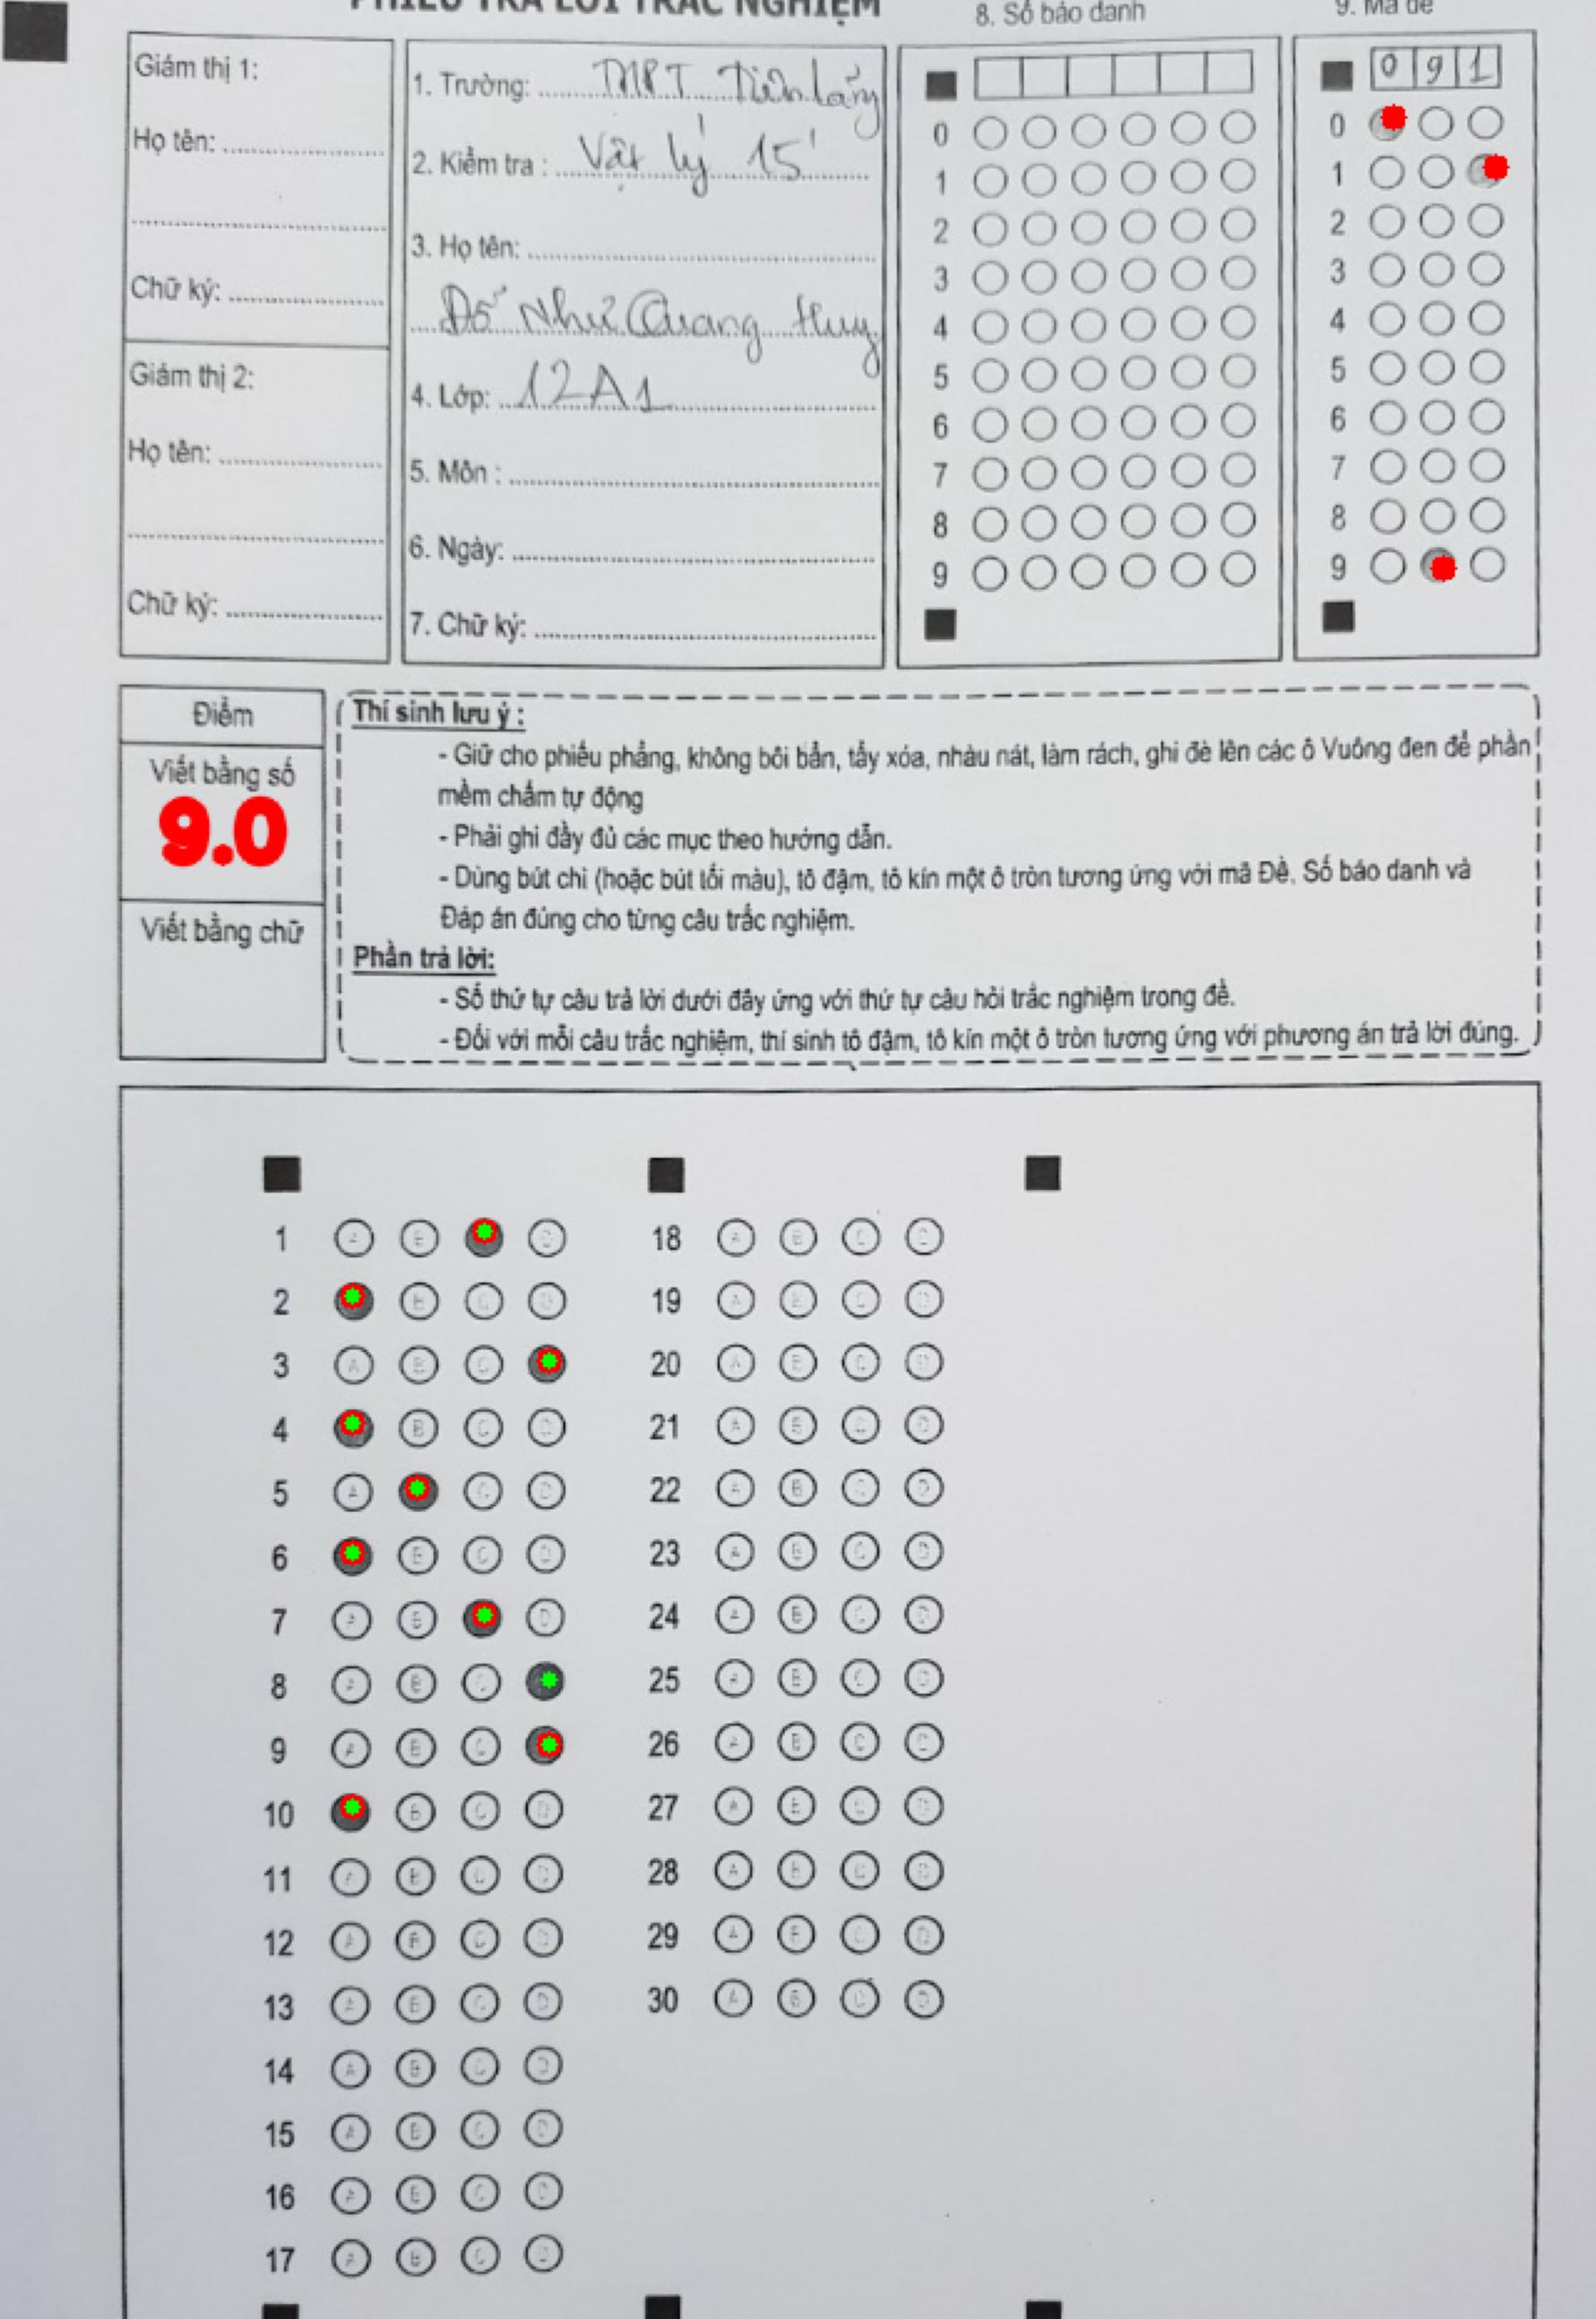 PHIẾU TRẢ LỜI TRẮC NGHIỆM
8. Số báo danh
9. Mã đề
Giám thị 1:
Họ tên:
Chữ ký:
Giám thị 2:
Họ tên:
Chữ ký:
1. Trường: THPT Tiên Lãng
2. Kiểm tra : Vật lý 15'
3. Họ tên:
Đỗ Như Quang Huy
4. Lớp: 12A1
5. Môn :
6. Ngày:
7. Chữ ký:
0
1
2
3
4
5
6
7
8
9
0 9 1
0
1
2
3
4
5
6
7
8
9
Điểm
Viết bằng số
9.0
Viết bằng chữ
Thí sinh lưu ý :
- Giữ cho phiếu phẳng, không bôi bẩn, tẩy xóa, nhàu nát, làm rách, ghi đè lên các ô Vuông đen để phần
mềm chấm tự động
- Phải ghi đầy đủ các mục theo hướng dẫn.
- Dùng bút chì (hoặc bút tối màu), tô đậm, tô kín một ô tròn tương ứng với mã Đề, Số báo danh và
Đáp án đúng cho từng câu trắc nghiệm.
Phần trả lời:
- Số thứ tự câu trả lời dưới đây ứng với thứ tự câu hỏi trắc nghiệm trong đề.
- Đối với mỗi câu trắc nghiệm, thí sinh tô đậm, tô kín một ô tròn tương ứng với phương án trả lời đúng.
1 A B D
2 B C D
3 A B C
4 B C D
5 A C D
6 B C D
7 A B D
8 A B C
9 A B C
10 B C D
11 A B C D
12 A B C D
13 A B C D
14 A B C D
15 A B C D
16 A B C D
17 A B C D
18 A B C D
19 A B C D
20 A B C D
21 A B C D
22 A B C D
23 A B C D
24 A B C D
25 A B C D
26 A B C D
27 A B C D
28 A B C D
29 A B C D
30 A B C D